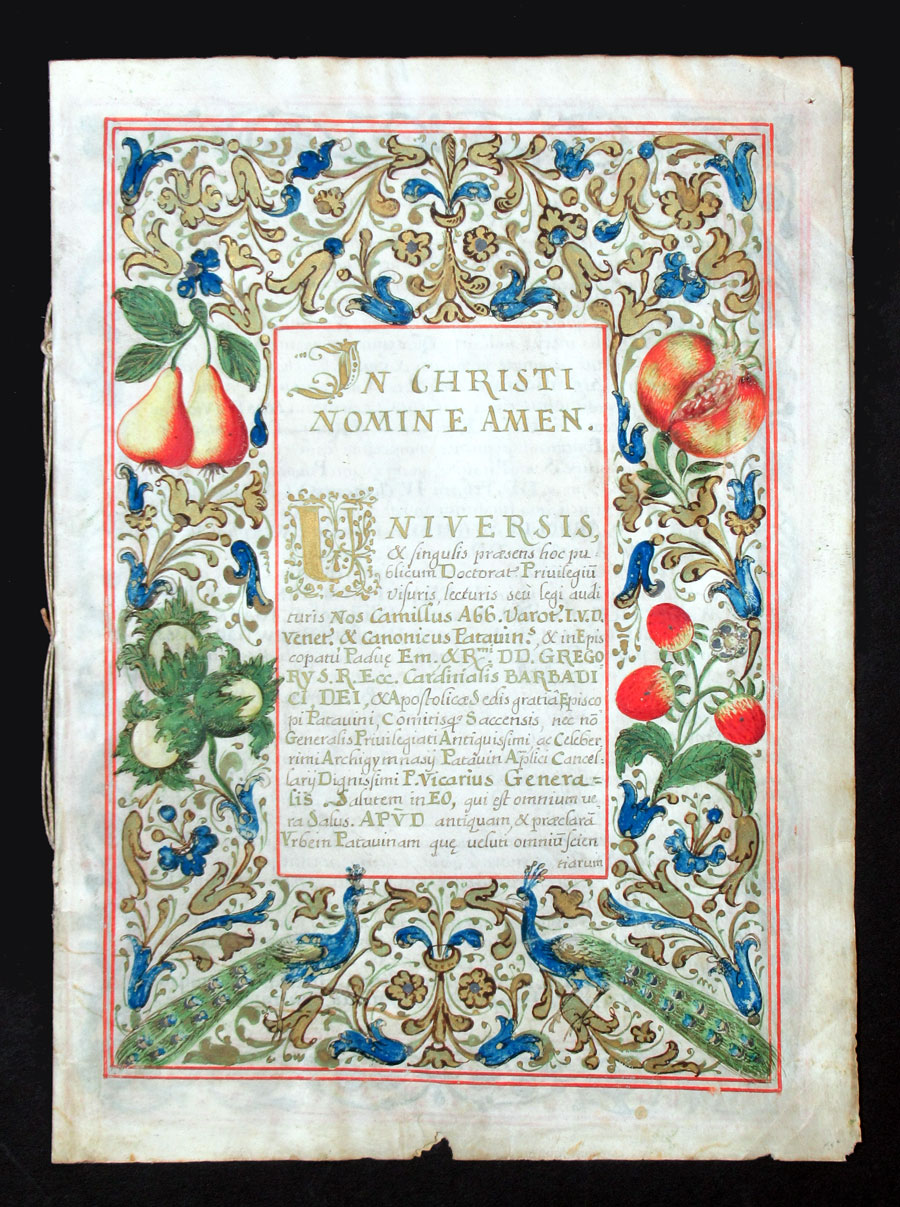 IN CHRISTI
NOMINE AMEN.
UNIVERSIS,
& singulis præsens hoc pu-
blicum Doctorat. Privilegiū
visuris, lecturis seu legi audi
turis Nos Camillus Abb. Varot. I.V.D.
Venet. & Canonicus Patavin.s & in Epis
copatu Paduę Em. & R.mi DD. GREGO
RY S. R. Ecc. Cardinalis BARBADI
CI, DEI, & Apostolicæ Sedis gratia Episco
pi Patavini, Comitisq; Saccensis, nec nō
Generalis Privilegiati Antiquissimi ac Celeber
rimi Archigymnasy Patavin Aplici Cancel-
larij Dignissimi P. Vicarius Genera=
lis Salutem in EO, qui est omnium ve
ra Salus. APV̄D antiquam, & præclarā
Vrbem Patavinam quę veluti omniū scien
tiarum